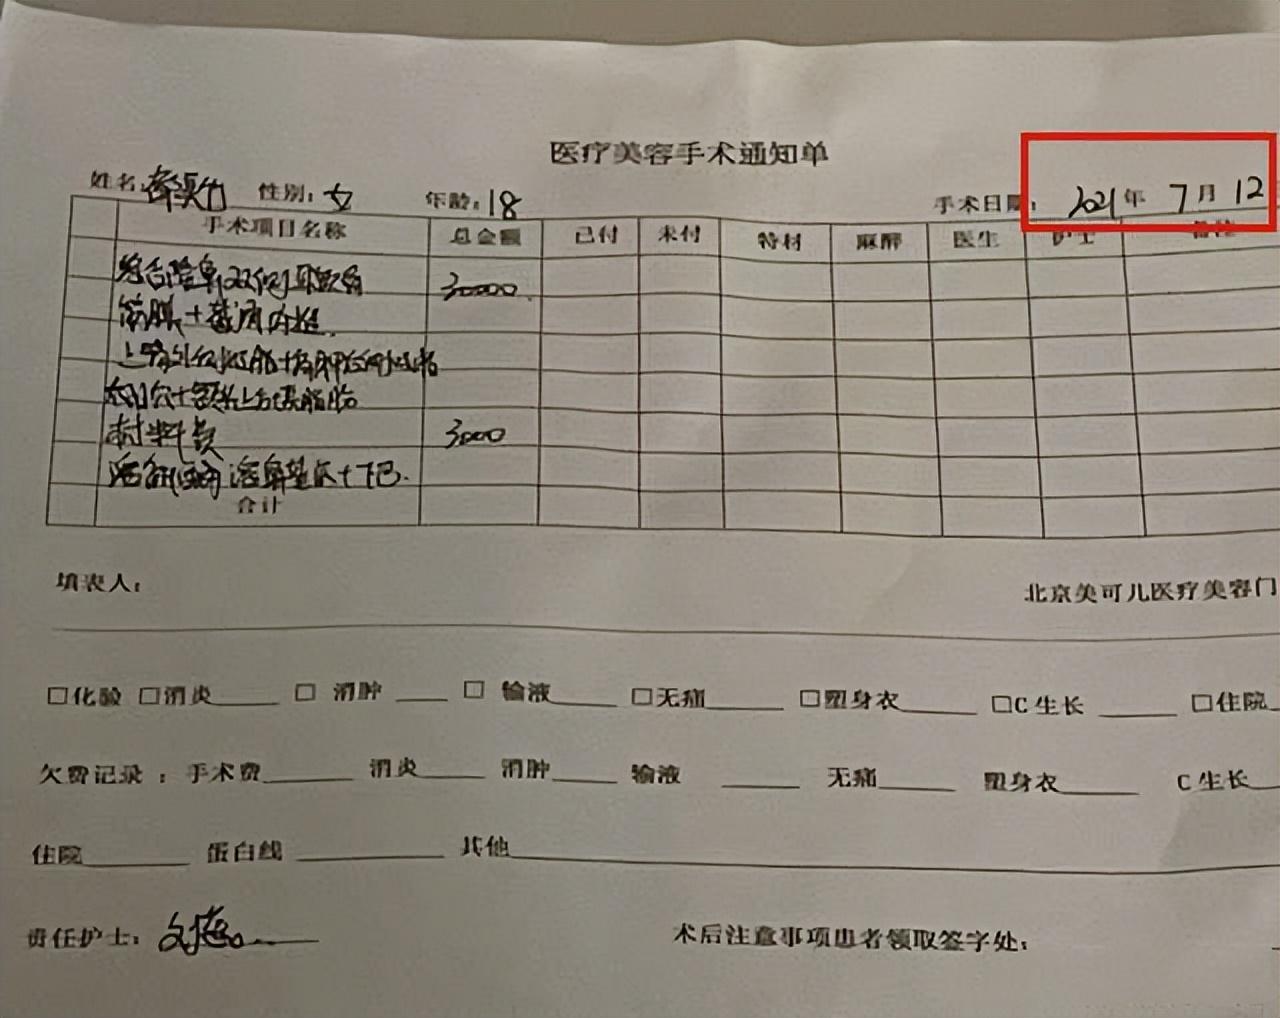 医疗美容手术通知单
姓名: 性别: 女 年龄: 18 手术日期: 2021年 7月 12
手术项目名称 总金额 已付 未付 特材 麻醉 医生 护士 备注
综合隆鼻 双侧耳软骨 30000
筋膜+
材料费 3000
+下巴.
合计
填表人: 北京美可儿医疗美容门
□化验 □消炎 □ 消肿 □ 输液 □无痛 □塑身衣 □C生长 □住院
欠费记录 : 手术费 消炎 消肿 输液 无痛 塑身衣 C生长
住院 蛋白线 其他
责任护士: 术后注意事项患者领取签字处: